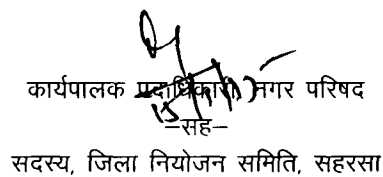 कार्यपालक पदाधिकारी, नगर परिषद
–सह–
सदस्य, जिला नियोजन समिति, सहरसा